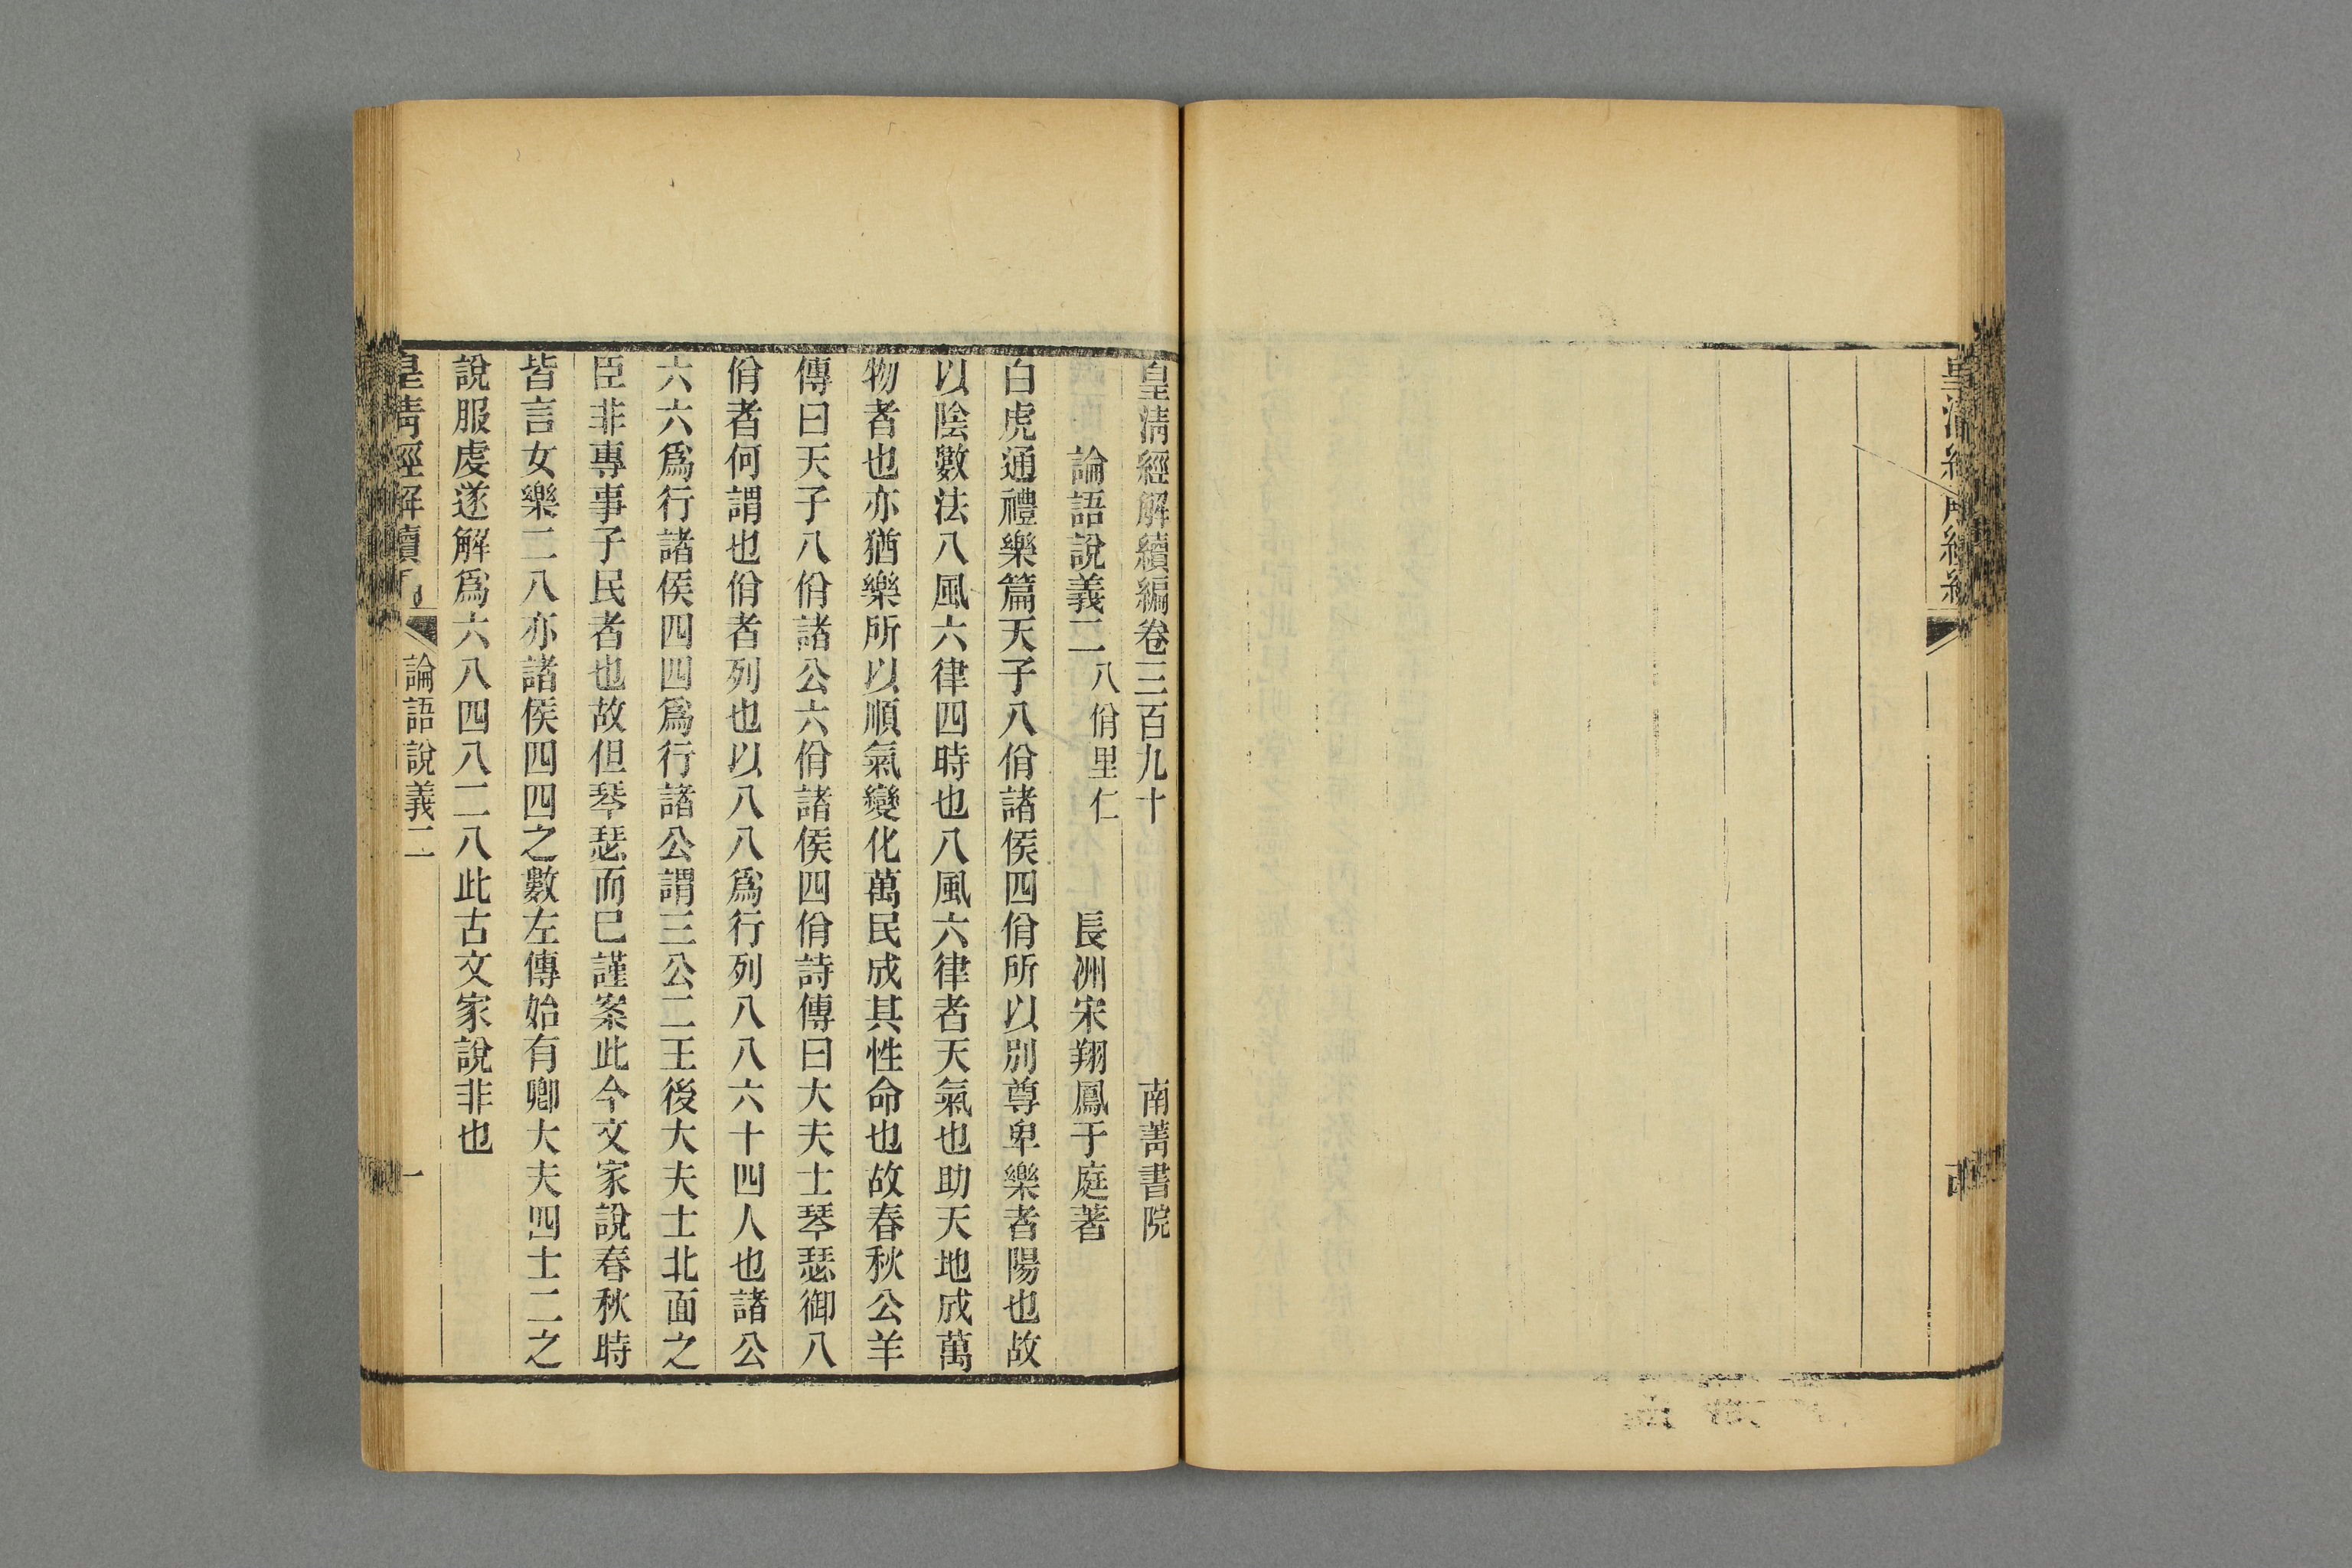 皇清經解續編卷三百九十 南菁書院
論語說義二 八佾里仁 長洲宋翔鳳于庭著
白虎通禮樂篇天子八佾諸侯四佾所以別尊卑樂者陽也故
以陰數法八風六律四時也八風六律者天氣也助天地成萬
物者也亦猶樂所以順氣變化萬民成其性命也故春秋公羊
傳曰天子八佾諸公六佾諸侯四佾詩傳曰大夫士琴瑟御八
佾者何謂也佾者列也以八八爲行列八八六十四人也諸公
六六爲行諸侯四四爲行諸公謂三公二王後大夫士北面之
臣非專事子民者也故但琴瑟而已謹案此今文家說春秋時
皆言女樂二八亦諸侯四四之數左傳始有卿大夫四士二之
說服虔遂解爲六八四八二八此古文家說非也
皇清經解續 論語說義二 一